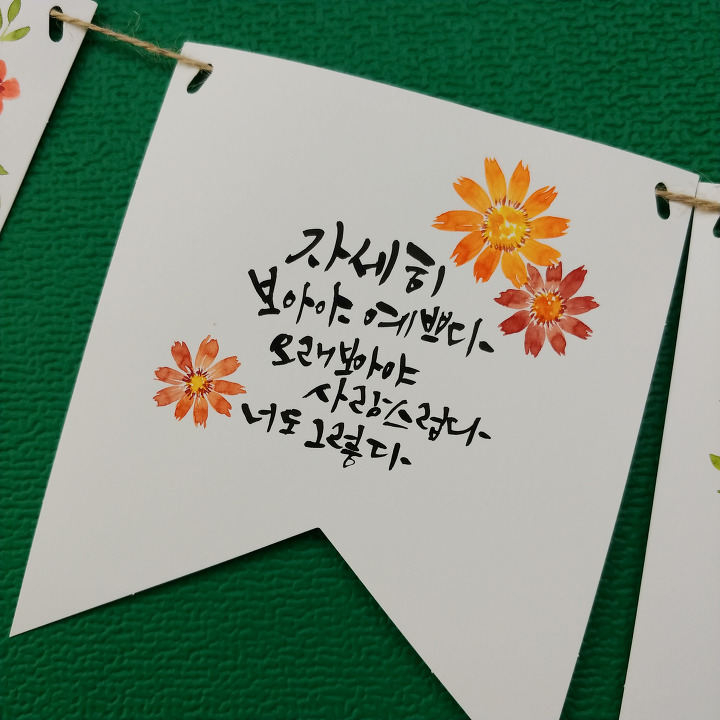 자세히
보아야 예쁘다.
오래보아야
사랑스럽다.
너도그렇다.